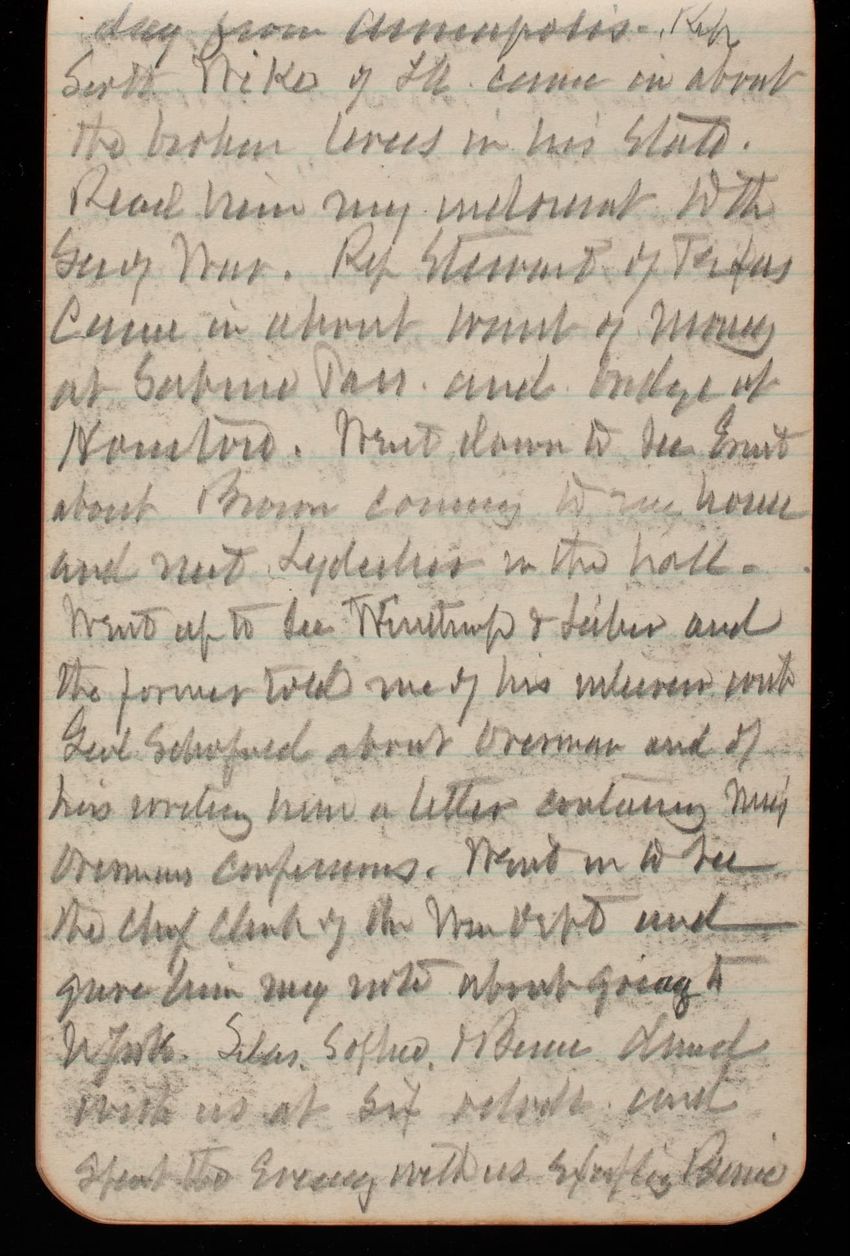 day from Annapolis. Rep
Scott Wike of Ill. came in about
the broken levees in his State.
Read him my indorsement to the
Sec of War. Rep Stewart of Texas
Came in about want of money
at Sabine Pass. and bridge at
Houston. Went down to see
about Brown coming to my house
and met Lydecker in the hall.
Went up to see Winthrop & Lieber and
the former told me of his interview with
Genl Schofield about Overman and of
his writing him a letter containing
Overmans confessions. Went in to see
the Chief Clerk of the War Dept and
gave him my note about going to
N York. Silas, Sophie, & Bernie dined
with us at six oclock and
spent the Evening with us Bernie